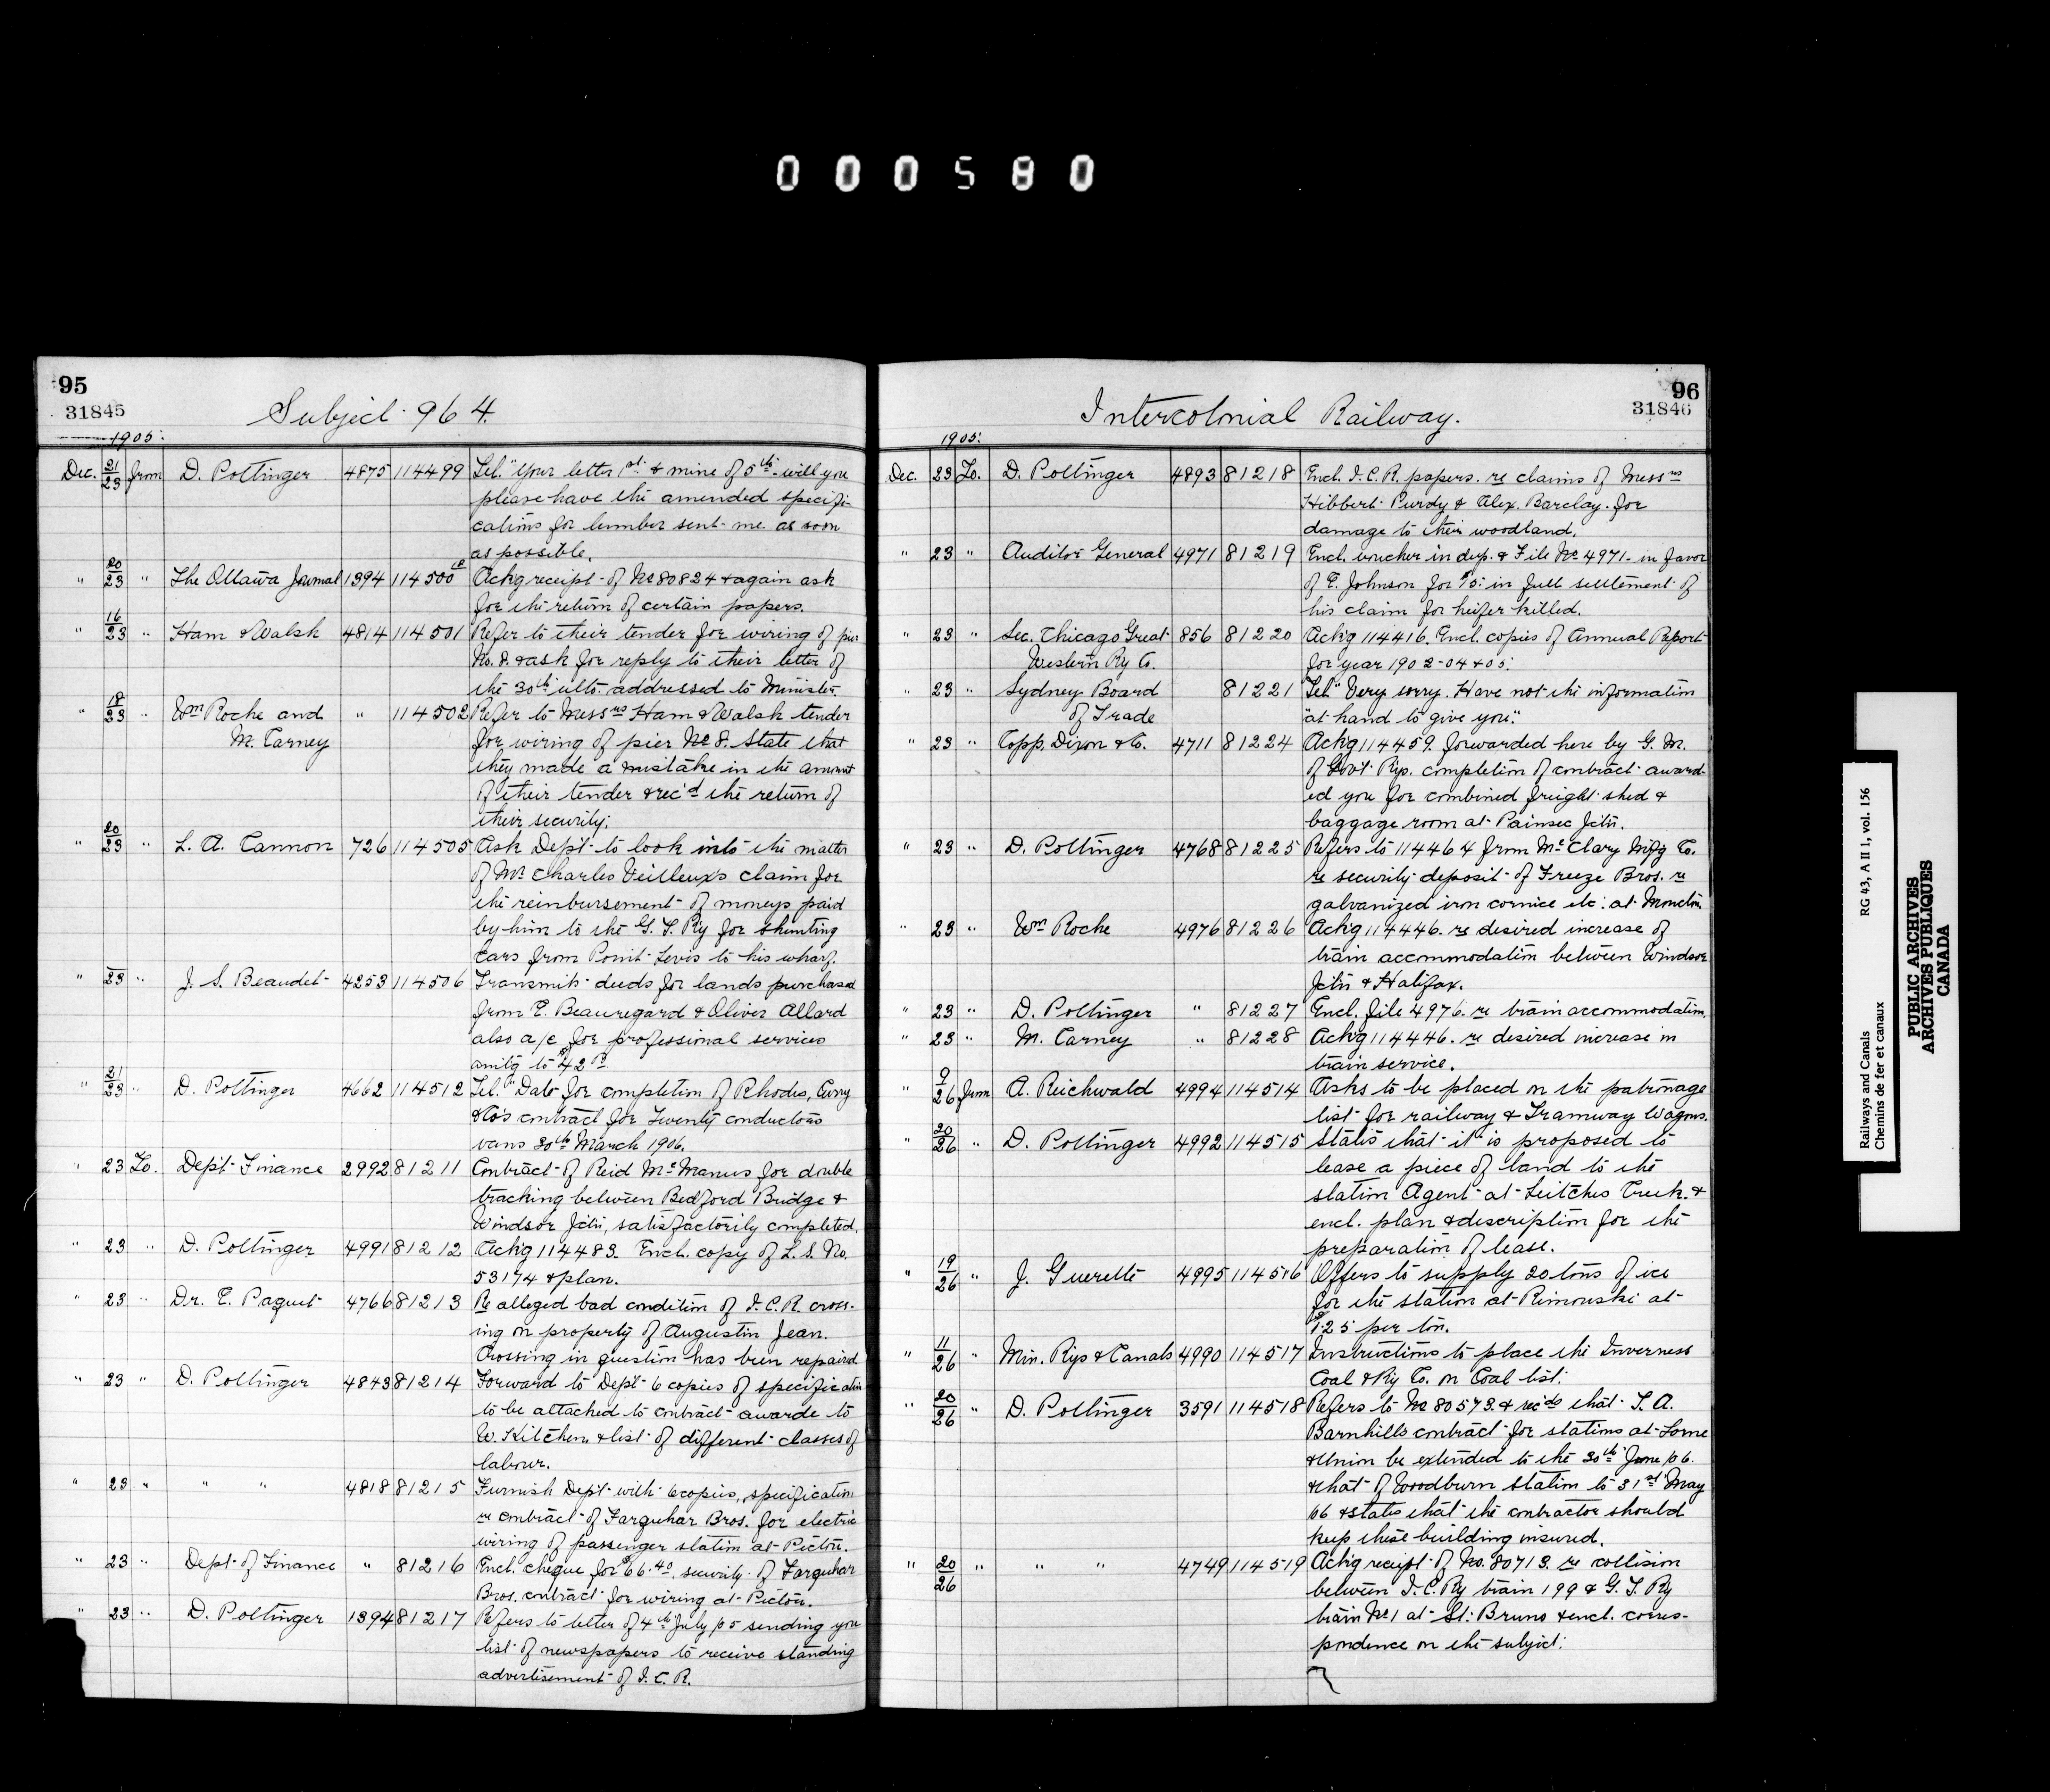 000580
95
31845
Subject 964.
1905.
Dec. 21/23 from D. Pottinger 4875 114499 Tel. "Your letter 1st & mine of 5th will you
please have the amended specifi-
cations for lumber sent me as soon
as possible.
" 20/23 " The Ottawa Journal 1394 114500 Ackg receipt of No 80824 & again ask
for the return of certain papers.
" 16/23 " Ham & Walsh 4814 114501 Refer to their tender for wiring of pier
No. 8. & ask for reply to their letter of
the 30th ulto. addressed to Minister.
" 18/23 " Wm Roche and " 114502 Refer to Messrs Ham & Walsh tender
M. Carney for wiring of pier No 8. State that
they made a mistake in the amount
of their tender & rec'd the return of
their security.
" 20/23 " L. A. Cannon 726 114505 Ask Dept to look into the matter
of Mr Charles Veilleux's claim for
the reinbursement of moneys paid
by him to the G. T. Ry for shunting
cars from Point Levis to his wharf.
" 23 " J. S. Beaudet 4253 114506 Transmits deeds for lands purchased
from E. Beauregard & Oliver Allard
also a/c for professional services
amtg to $42
" 21/23 " D. Pottinger 4662 114512 Tel. "Date for completion of Rhodes, Curry
& Co's contract for Twenty conductors
vans 30th March 1906.
" 23 To. Dept Finance 2992 81211 Contract of Reid McManus for double
tracking between Bedford Bridge &
Windsor Jctn, satisfactorily completed.
" 23 " D. Pottinger 4991 81212 Ackg 114483. Encl. copy of L. S. No.
53174 & plan.
" 23 " Dr. E. Paquet 4766 81213 Re alleged bad condition of I.C.R. cross-
ing on property of Augustin Jean.
Crossing in question has been repaired
" 23 " D. Pottinger 4843 81214 Forward to Dept 6 copies of specification
to be attached to contract awarde to
W. Kitchen & list of different classes of
labour.
" 23 " " " 4818 81215 Furnish Dept with 6 copies, specification
re contract of Farquhar Bros. for electric
wiring of passenger station at Pictou.
" 23 " Dept of Finance " 81216 Encl. cheque for $66.40. security of Farquhar
Bros. contract for wiring at Pictou.
" 23 " D. Pottinger 1394 81217 Refers to letter of 4th July/05 sending you
list of newspapers to receive standing
advertisement of I. C. R.
96
31846
Intercolonial Railway.
1905.
Dec. 23 To. D. Pottinger 4893 81218 Encl. I. C. R. papers. re claims of Messrs
Hibbert Purdy & Alex. Barclay. for
damage to their woodland.
" 23 " Auditor General 4971 81219 Encl. voucher in dup. & File No 4971. in favor
of E. Johnson for $5. in full settlement of
his claim for heifer killed.
" 23 " Sec. Chicago Great 856 81220 Ackg 114416. Encl. copies of Annual Report
Western Ry Co. for year 1902-04 & 05.
" 23 " Sydney Board 81221 Tel. "Very sorry. Have not the information
of Trade at hand to give you."
" 23 " Copp. Dixon & Co. 4711 81224 Ackg 114459. forwarded here by G. M.
of Govt Rys. completion of contract award-
ed you for combined freight shed &
baggage room at Painsec Jctn.
" 23 " D. Pottinger 4768 81225 Refers to 114464 from McClary Mfg Co.
re security deposit of Freeze Bros. re
galvanized iron cornice etc. at Moncton.
" 23 " Wm Roche 4976 81226 Ackg 114446. re desired increase of
train accommodation between Windsor
Jctn & Halifax.
" 23 " D. Pottinger " 81227 Encl. file 4976. re train accommodation.
" 23 " M. Carney " 81228 Ackg 114446. re desired increase in
train service.
" 9/26 from A. Reichwald 4994 114514 Asks to be placed on the patronage
list for railway & Tramway Wagons.
" 20/26 " D. Pottinger 4992 114515 States that it is proposed to
lease a piece of land to the
station Agent at Leitches Creek. &
encl. plan & description for the
preparation of lease.
" 19/26 " J. Guerette 4995 114516 Offers to supply 20 tons of ice
for the station at Rimouski at
$1.25 per ton.
" 11/26 " Min. Rys & Canals 4990 114517 Instructions to place the Inverness
Coal & Ry Co. on Coal list.
" 20/26 " D. Pottinger 3591 114518 Refers to No 80573. & rec'ds that T. A.
Barnhills contract for stations at Lorne
& Union be extended to the 30th June/06.
& that of Woodburn station to 31st May
06 & states that the contractor should
keep these building insured.
" 20/26 " " " 4749 114519 Ackg receipt of No. 80713. re collision
between I. C. Ry train 199 & G. T. Ry
train No 1 at St. Bruno & encl. corres-
pondence on the subject.
Railways and Canals RG 43, A II 1, vol. 156
Chemins de fer et canaux
PUBLIC ARCHIVES
ARCHIVES PUBLIQUES
CANADA